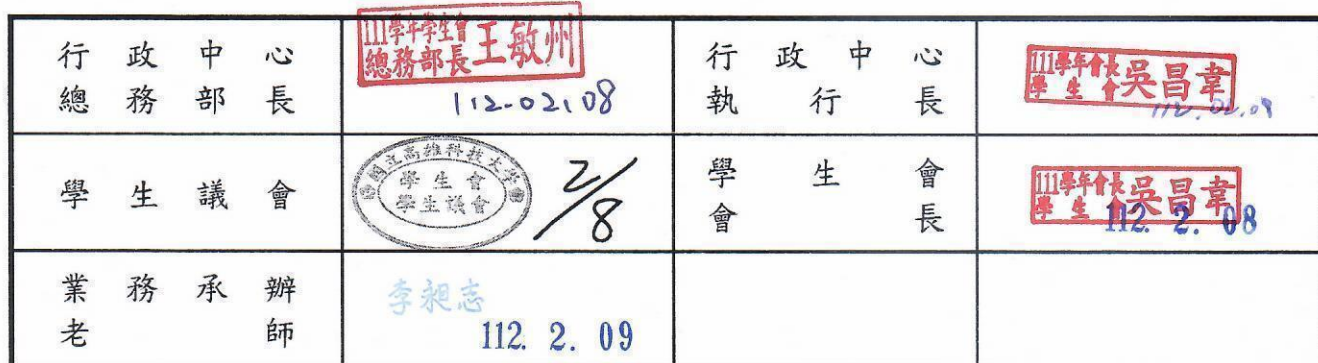 行政中心
總務部長
111學年學生會
總務部長
王敏州
112.02.08
行政中心
執行長
111學年會長
學生會
吳昌韋
112.02.08
學生議會
國立高雄科技大學
學生會
學生議會
2/8
學生會
會長
111學年會長
學生會
吳昌韋
112. 2. 08
業務承辦
老師
李昶志
112. 2. 09